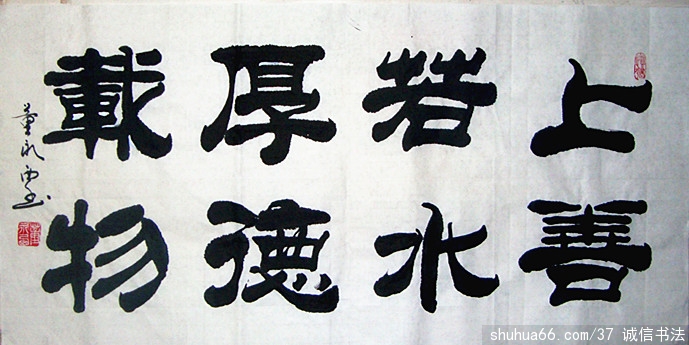 上善
若水
厚德
載物
shuhua66.com/37 诚信书法